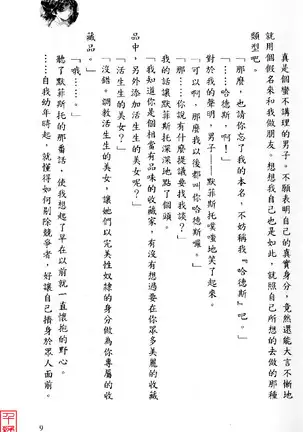 真是個蠻不講理的男子。不願表明自己的真實身分，竟然還能大言不慚地
就用個假名來和我做朋友。想想我自己也是如此，就照自己所想的去做的那種
類型吧。
「那麼，也請你忘了我的本名，不妨稱我『哈德斯』吧。」
「……哈德斯，啊！」
對於我的聲明，男子——默菲斯托噗嗤地笑了起來。
「可以啊，那麼我以後都叫你哈德斯囉。」
「那……你說有什麼提議要找我談？」
我的話讓默菲斯托深深地點了個頭。
「我知道你是個相當有品味的收藏家，有沒有想過要在你眾多美麗的收藏
品中，另外添加活生生的美女？」
「活生生的美女？」
「沒錯。調教活生生的美女，讓她們以完美性奴隸的身分做為你專屬的收
藏品。」
「哦……。」
聽了默菲斯托的那番話，使我想起了早在以前就一直懷抱的野心。
……自我幼年時起，就懂得如何剔除競爭者，好讓自己揚身於眾人面前。
9